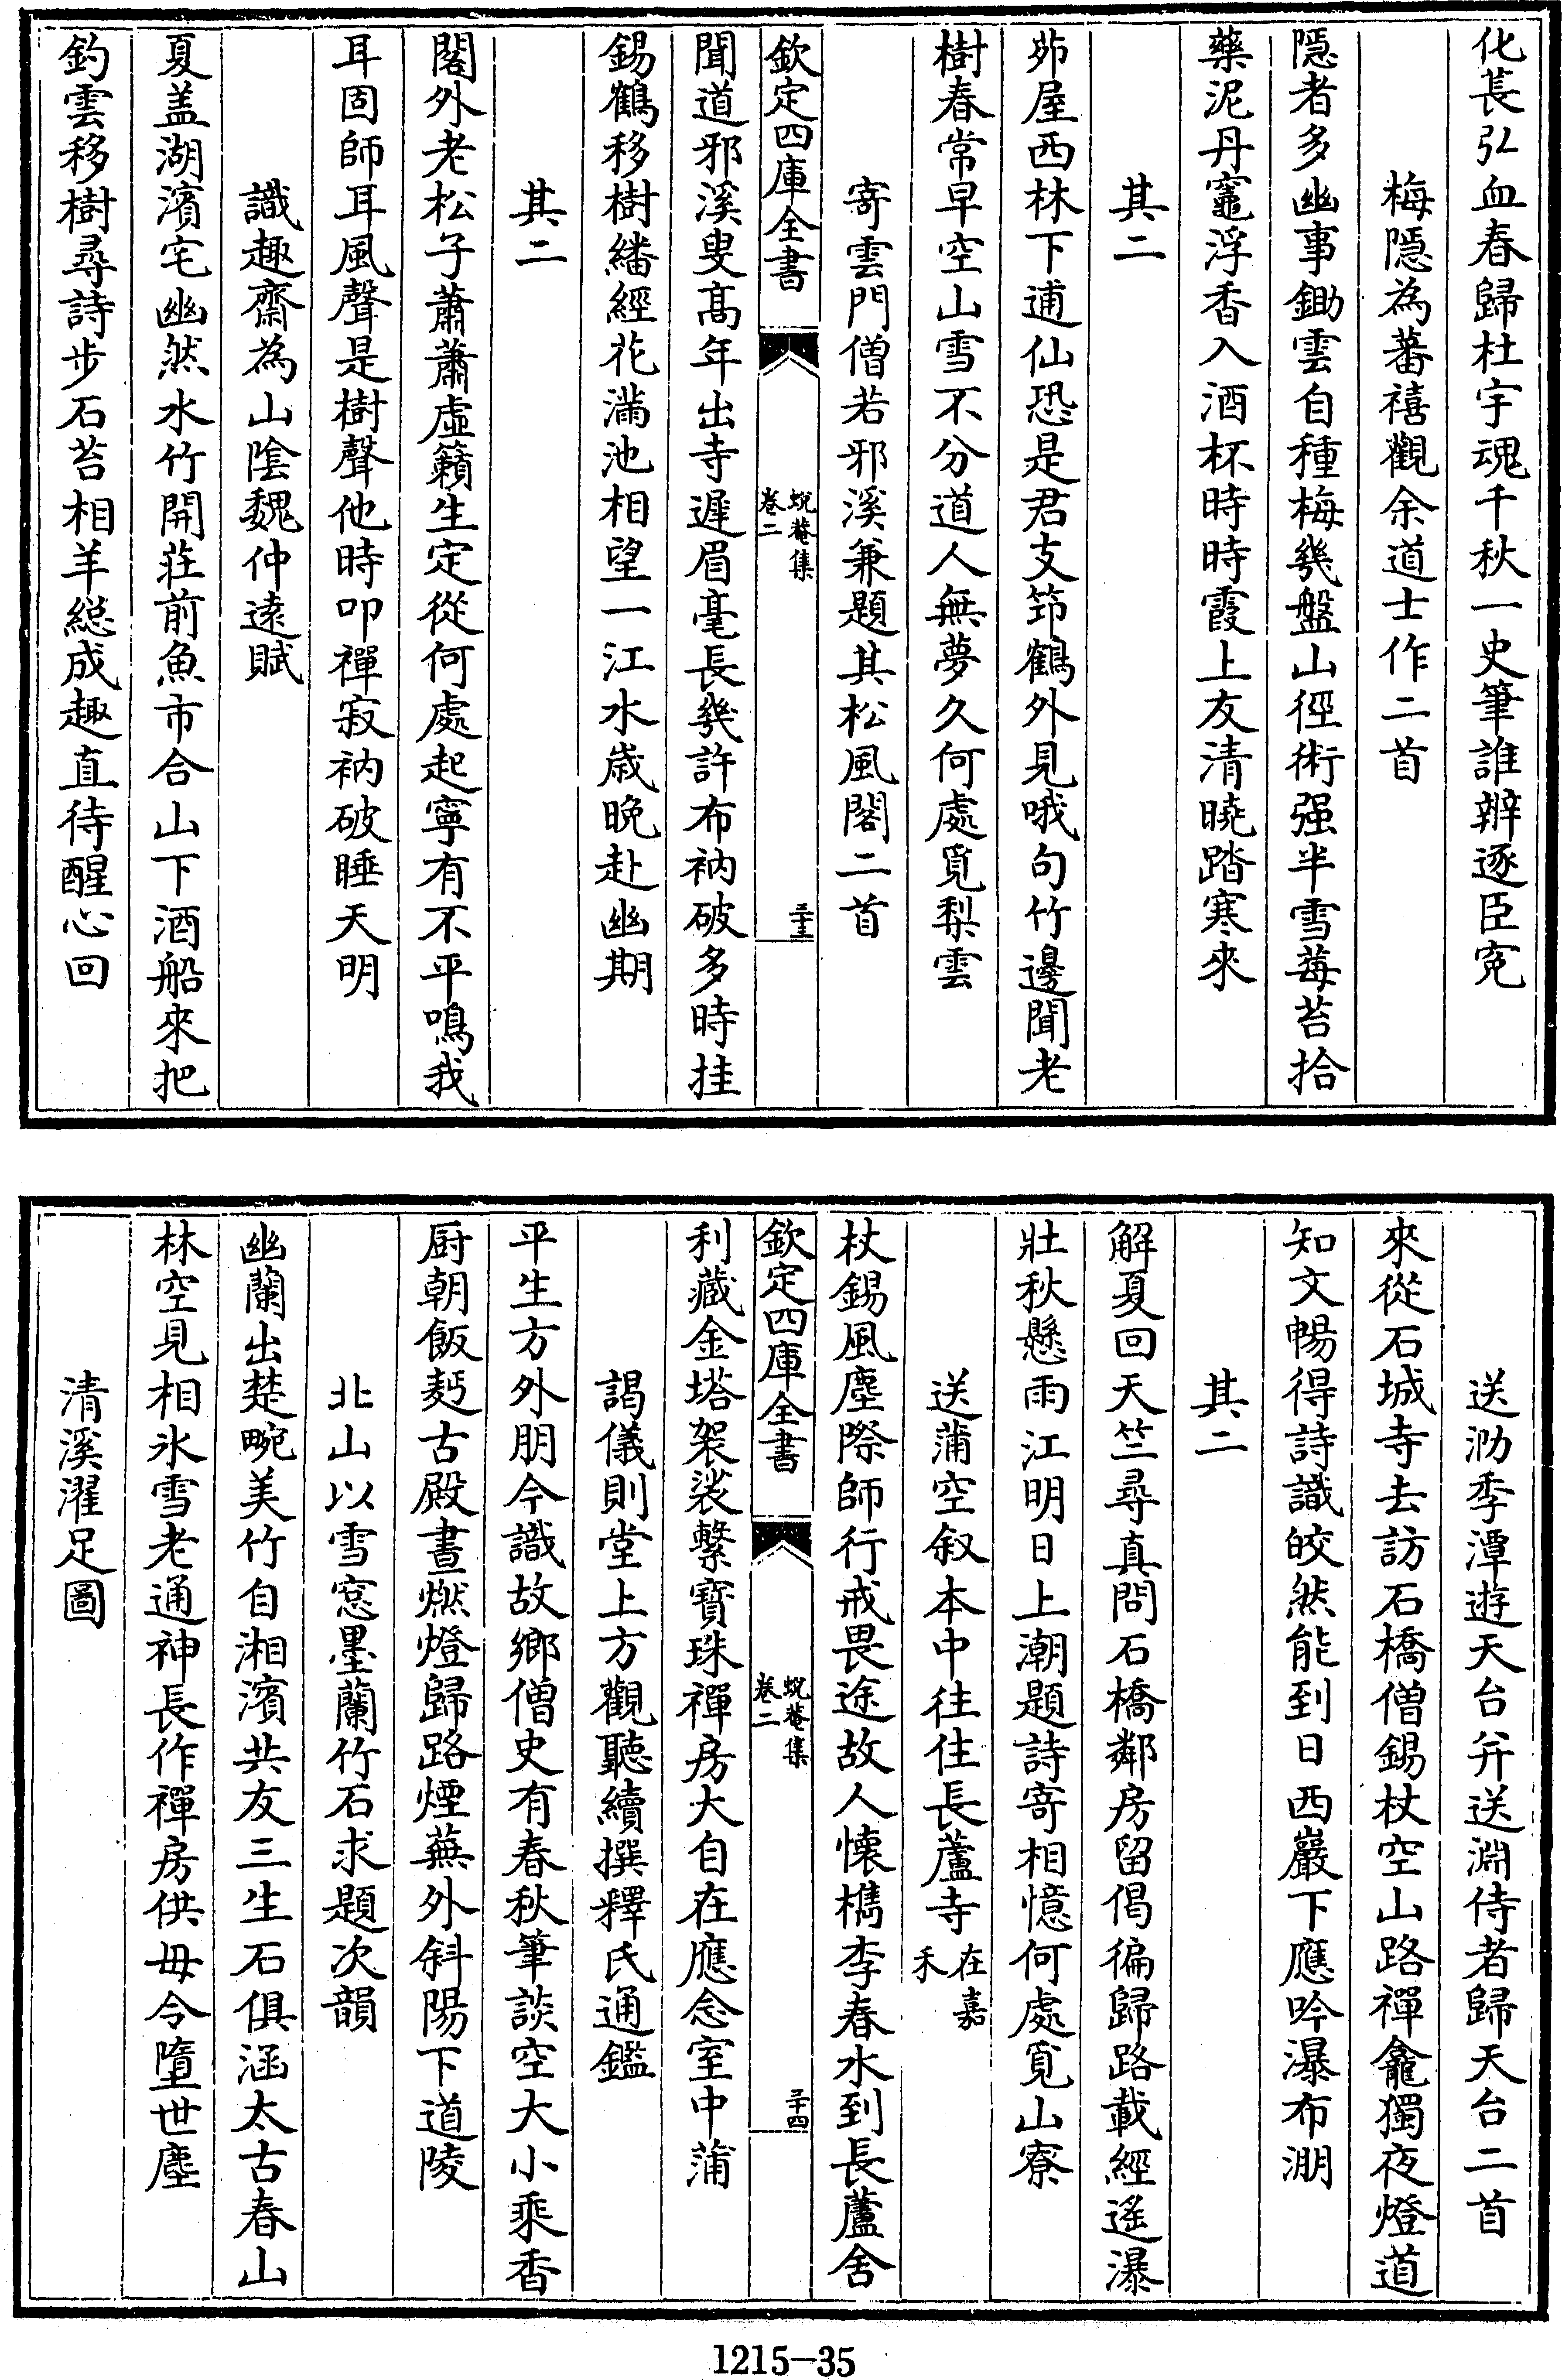 化萇弘血春歸杜宇魂千秋一史筆誰辨逐臣寃
梅隱為蕃禧觀余道士作二首
隱者多幽事鋤雲自種梅幾盤山徑術强半雪莓苔拾
藥泥丹竈浮香入酒杯時時霞上友清曉踏寒來
其二
茆屋西林下逋仙恐是君支笻鶴外見哦句竹邊聞老
樹春常早空山雪不分道人無夢久何處覓梨雲
寄雲門僧若邪溪兼題其松風閣二首
欽定四庫全書
蛻菴集
卷二
三十三
聞道邪溪叟髙年出寺遲眉毫長幾許布衲破多時挂
錫鶴移樹繙經花滿池相望一江水歲晚赴幽期
其二
閣外老松子蕭蕭虛籟生定從何處起寧有不平鳴我
耳固師耳風聲是樹聲他時叩禪寂衲破睡天明
識趣齋為山陰魏仲遠賦
夏盖湖濱宅幽然水竹開莊前魚市合山下酒船來把
釣雲移樹尋詩步石苔相羊総成趣直待醒心回
送泐季潭遊天台并送淵侍者歸天台二首
來從石城寺去訪石橋僧錫杖空山路禪龕獨夜燈道
知文暢得詩識皎然能到日西巖下應吟瀑布淜
其二
解夏回天竺尋真問石橋鄰房留偈徧歸路載經遙瀑
壯秋懸雨江明日上潮題詩寄相憶何處覓山寮
送蒲空叙本中往住長蘆寺在嘉禾
杖錫風塵際師行戒畏途故人懷檇李春水到長蘆舍
欽定四庫全書
蛻菴集
卷二
三十四
利藏金塔袈裟繫寳珠禪房大自在應念室中蒲
謁儀則堂上方觀聽續撰釋氏通鑑
平生方外朋今識故鄉僧史有春秋筆談空大小乘香
厨朝飯𪍿古殿晝燃燈歸路煙蕪外斜陽下道陵
北山以雪窓墨蘭竹石求題次韻
幽蘭出楚畹美竹自湘濱共友三生石俱涵太古春山
林空見相氷雪老通神長作禪房供毋令墮世塵
清溪濯足圖
1215—35